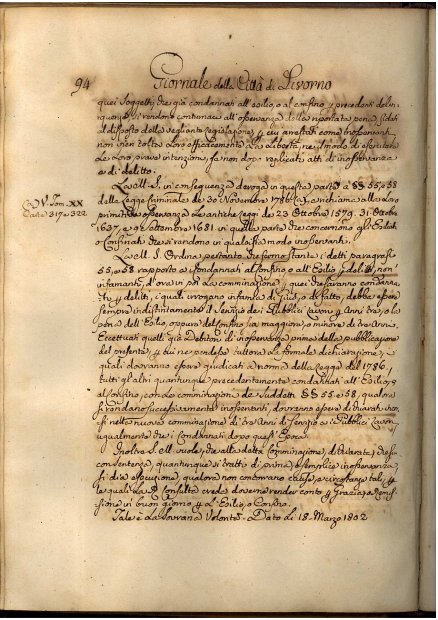 94 Giornale della Città di Livorno
quei Soggetti, che già condannati all'esilio, o al confino p precedenti delin-
quenze si rendono contumaci all'osservanza della riportata pena, fidati
al disposto della Vegliante Legislazione, p cui arrestati come inosservanti
non vien tolta Loro efficacemente la Libertà, ne il modo di eseguitare
le Loro prave intenzioni, se non dopo replicati atti di inosservanza
e di delitto.
La M. S. in conseguenza deroga in questa parte a §§ 55, e 58
della Legge Criminale de 30 Novembre 1786 (a), e richiama alla Loro
primitiva osservanza le antiche Leggi de 23 Ottobre 1579. 31 Ottobre
1637, e 9 Settembre 1681 in quella parte che concernono gli Esiliati
o Confinati che si rendono in qualsisia modo inosservanti.
(a) V. Tom. XX
Carte 317 e 322
La M. S. Ordina pertanto che fermo stante i detti paragrafi
55, e 58 rapporto a Condannati al Confino o all'Esilio p delitti, non
infamanti, d'ora in poi la comminazione p quei che saranno condanna-
ti p delitti, i quali irrogano infamia di Jus, o di fatto, debba essere
sempre indistintamente il Servizio dei Pubblici Lavori p Anni tre, o la
pena dell'Esilio, oppure del Confino sia maggiore, o minore di tre Anni.
Eccettuati quelli già Debitori di inosservanza prima della pubblicazione
del presente, e p cui ne pendesse tuttora la formale dichiarazione, i
quali dovranno essere giudicati a norma della Legge del 1786,
tutti gli altri quantunque precedentemente condannati all'Esilio, o
al Confino, con la comminazione de' suddetti §§ 55 e 58, qualora
si rendano successivamente inosservanti, dovranno essere dichiarati incor-
si nella nuova comminazione di tre Anni di Servizio a i Pubblici Lavori
ugualmente che i Condannati dopo quest'Epoca.
Inoltre S. M. vuole, che alla detta Comminazione, dichiarata p
consentenza, quantunque si tratti di prima, e semplice inosservanza,
si dia esecuzione, qualora non concorrano cause, e circostanze tali, p
le quali la R. Consulta creda doverne render conto p Grazia, o Remis-
sione in buon giorno p l'Esilio, o Confino.
Tale è la Sovrana Volontà. Dato li 18. Marzo 1802